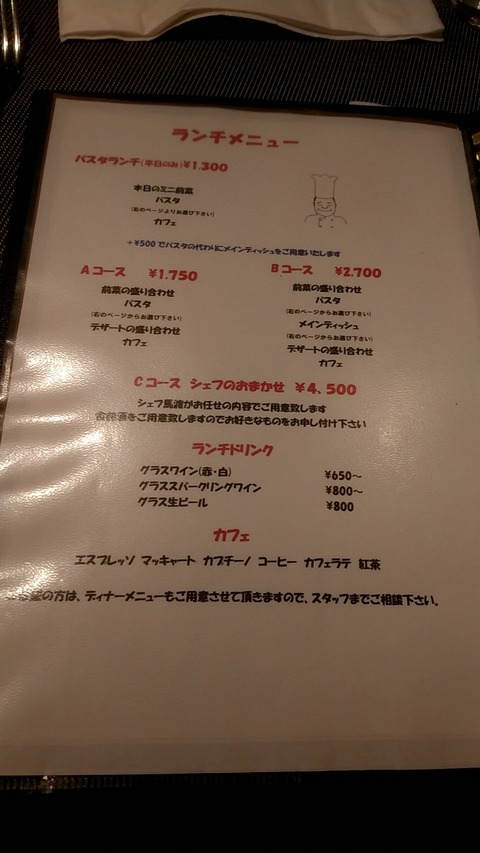 ランチメニュー
パスタランチ(本日のみ)¥1.300
本日のミニ前菜
パスタ
(右のページよりお選び下さい)
カフェ
+¥500でパスタの代わりにメインディッシュをご用意いたします
Aコース ¥1.750
前菜の盛り合わせ
パスタ
(右のページからお選び下さい)
デザートの盛り合わせ
カフェ
Bコース ¥2,700
前菜の盛り合わせ
パスタ
(右のページからお選び下さい)
メインディッシュ
(右のページからお選び下さい)
デザートの盛り合わせ
カフェ
Cコース シェフのおまかせ ¥4、500
シェフ馬渡がお任せの内容でご用意致します
をご用意致しますのでお好きなものをお申し付け下さい
ランチドリンク
グラスワイン(赤・白) ¥650~
グラススパークリングワイン ¥800~
グラス生ビール ¥800
カフェ
エスプレッソ マッキャート カプチーノ コーヒー カフェラテ 紅茶
希望の方は、ディナーメニューもご用意させて頂きますので、スタッフまでご相談下さい。